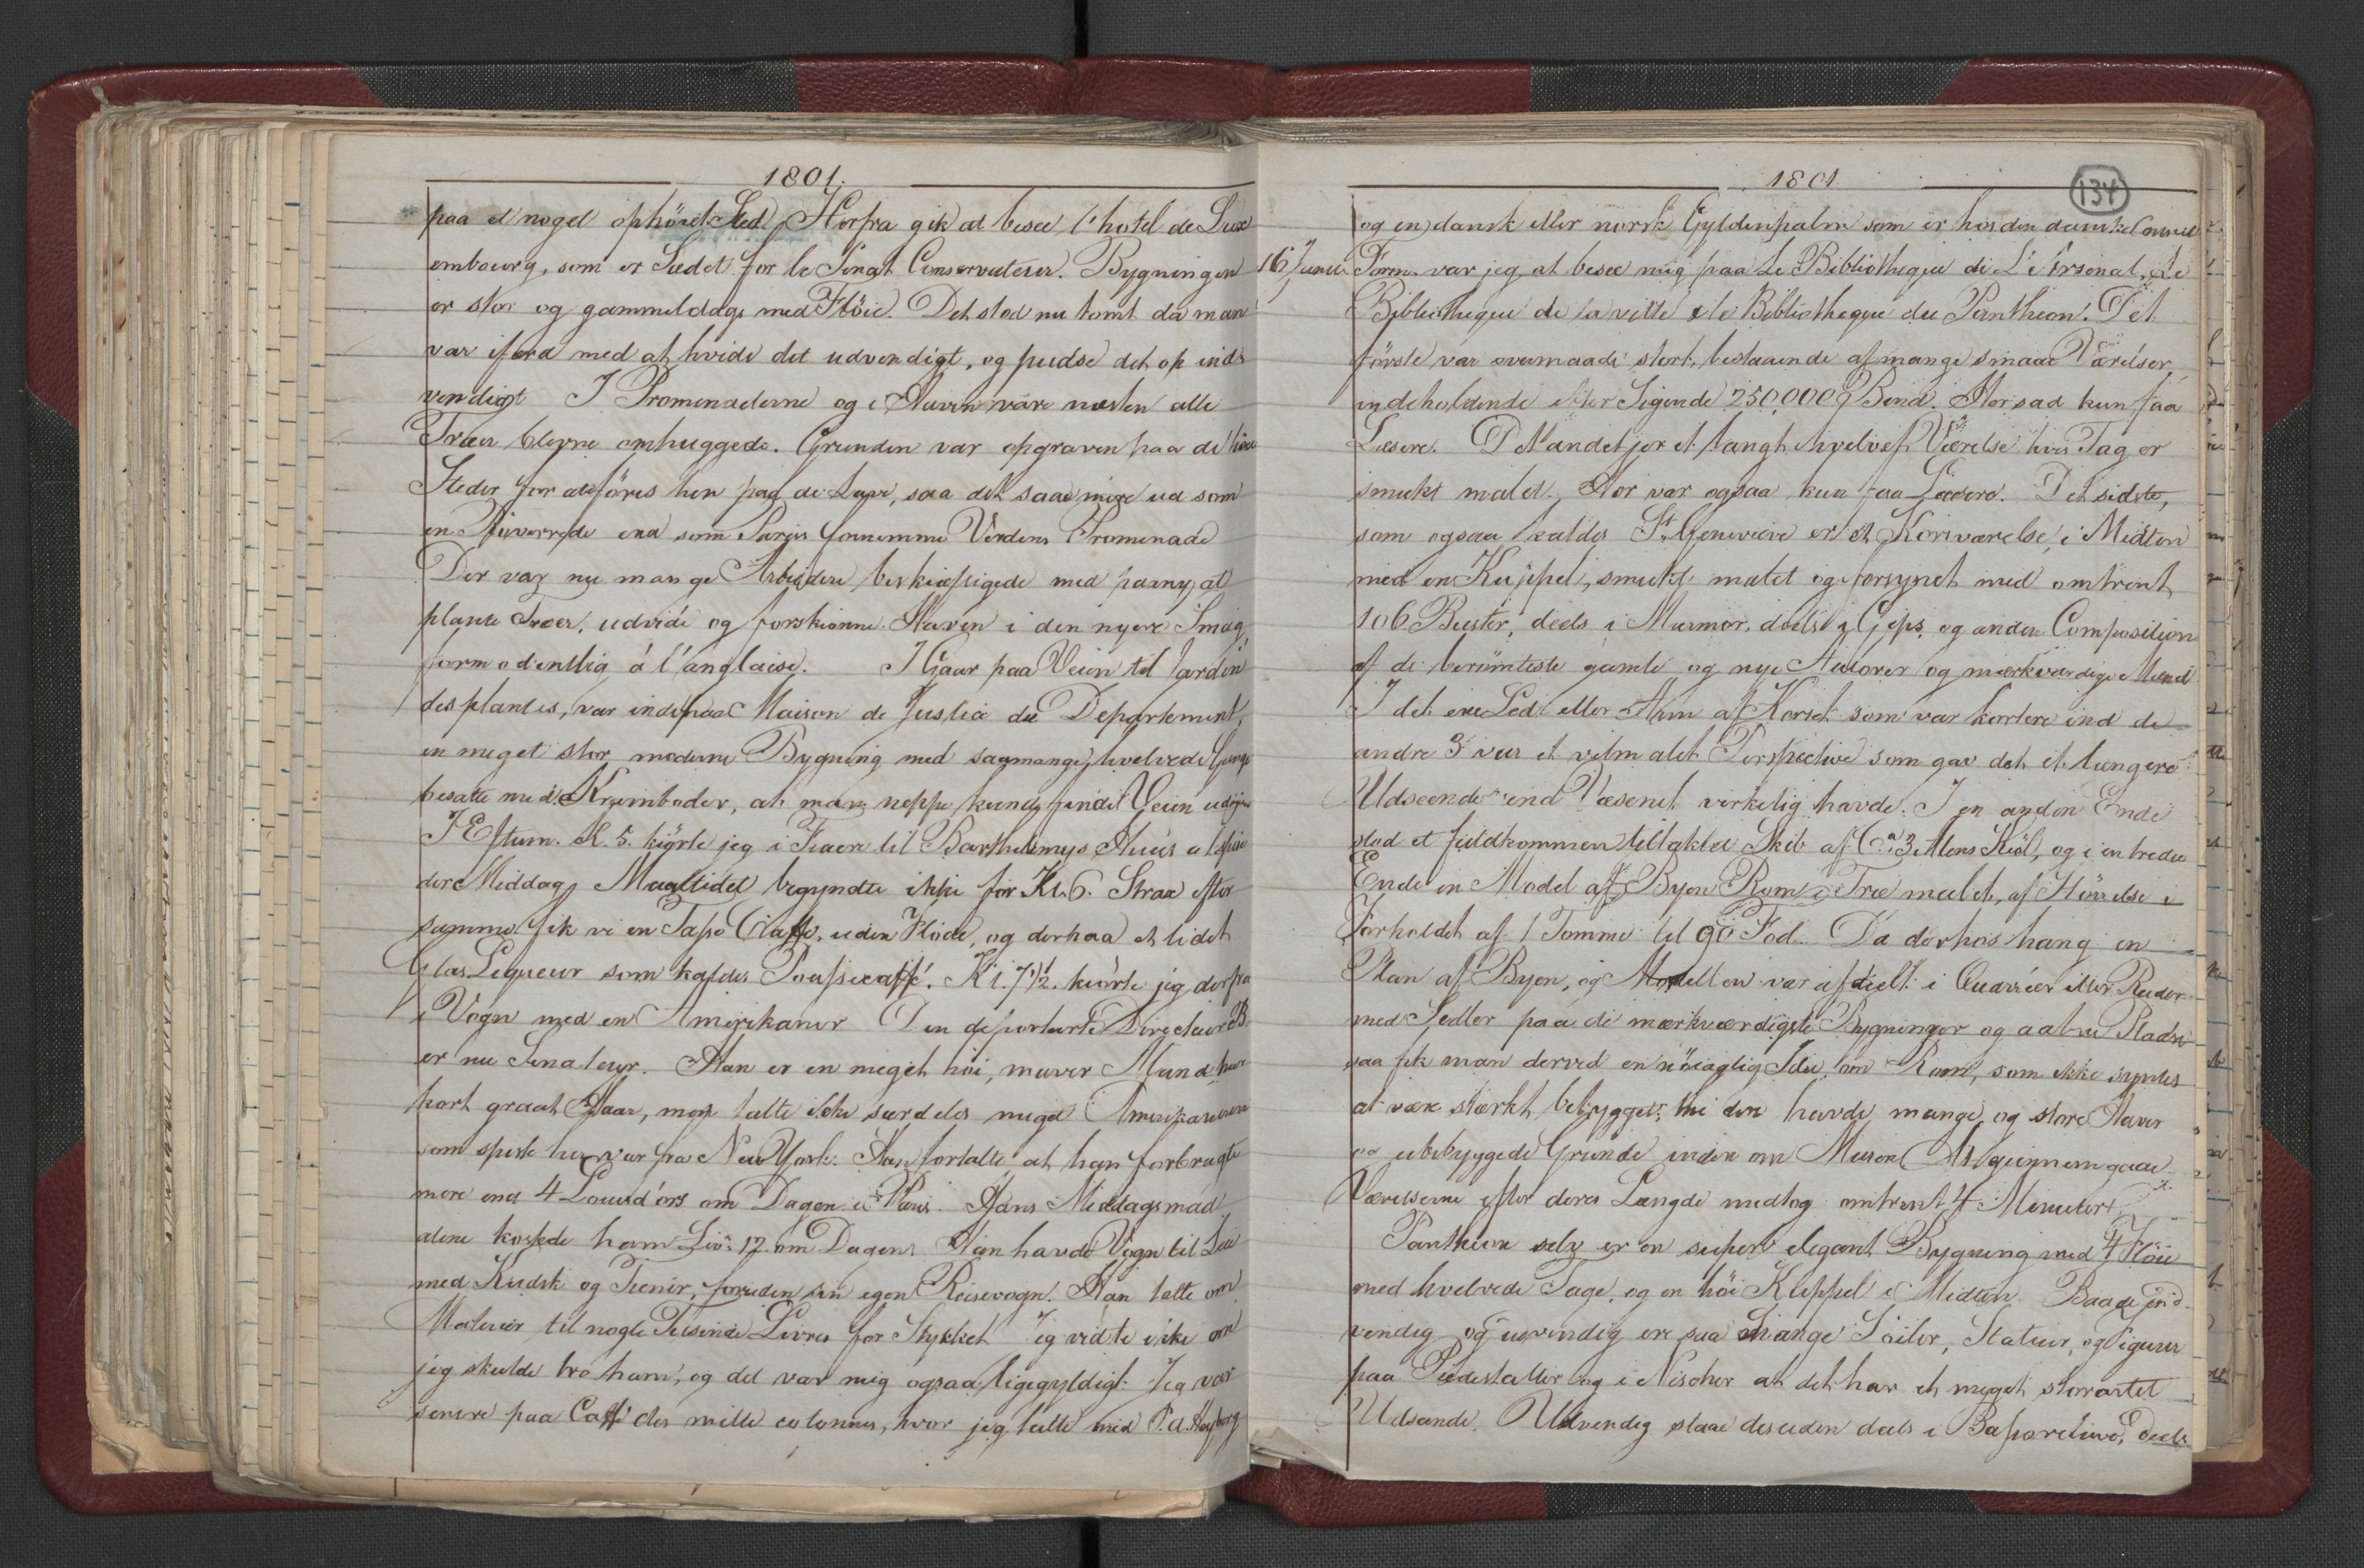 1801.
paa et noget ophöiet Sted. Herfra gik at besee l'hotel de Lux
embourg, som er Sædet for le Senat Conservateur. Bygningen
er stor og gammeldags med Flöie. Det stod nu tomt da man
var ifærd med at hvide det udvendigt, og pudse det op ind
vendigt I Promenaderne og i Haven vare næsten alle
Træer blevne omhuggede. Grunden var opgraven paa de höie
Steder for at föres hen paa de Lave, saa det saae mere ud som
en Röverrede end som Parjis fornemme Verdens Promenade
Der var nu mange Arbeidere beskiæftigede med paany at
plante Træer, udvide og forskiönne Haven i den nyere Smag,
formodentlig á l'anglaise. I Gaar paa Veien til Jardin
des plantes, var inde paa Maison de Justice du Departement,
en meget stor moderne Bygning med saa mange hvelvede Gange
besatte med Kramboder, at man neppe kunde finde Veien ud igien
I Efterm. Kl. 5. kiörte jeg i Fiacre til Barthelemys Huus at spise
der Middag. Maaltidet begyndte ikke för Kl. 6. Strax efter
samme fik vi en Tasse Caffe, uden Flöde, og derpaa et lidet
Glas Liqueur som kaldes Poussecaffé. Kl. 7½. kiörte jeg derfra
i Vogn med en Amerikaner Den deporterte Directeur B.
er nu Senateur. Han er en meget höi, maver Mand, har
kort graat Haar, men talte ikke særdeles meget Amerikaneren
som spiste her var fra New York. Han fortalte at han forbrugte
mere end 4 Louisd'ors om Dagen i Paris. Hans Middagsmad
alene kostede ham Liv: 12 om Dagen. Han havde Vogn til Leie
med Kudsk og Tiener, foruden sin egen Reisevogn. Han talte om
Malerier til nogle Tusinde Livres for Stykket Jeg vidste ikke om
jeg skulde troe ham, og det var mig ogsaa ligegyldigt. Jeg var
senere paa Caffé des mille colonnes, hvor jeg talte med P. A. Heyberg
1801.
134
og en dansk eller norsk Gyldenpalm som er hos den danske Consul
16 Junii Form. var jeg at besee mig paa Le Bibliotheque de L'Arsenal, Le
Bibliotheque de la ville & le Bibliotheque du Pantheon. Det
förste var overmaade stort, bestaaende af mange smaae Værelser,
indeholdende efter Sigende 250,000 Bind. Her sad kun faa
Læsere. Det andet er et langt hvelvet Værelse hvis Tag er
smukt malet. Her var ogsaa kun faa Læsere. Det sidste,
som ogsaa kaldes St Genevieve er et Korsværelse, i Midten
med en Kuppel, smukt malet og forsynet med omtrent
106 Buster, deels i Marmor, deels i Gips og anden Composition
af de berömteste gamle og nye Autorer og mærkværdige Mænd
I det ene Led eller Arm af Korset som var kortere end de
andre 3 var et vel malet Perspective som gav det et længere
Udseende end Væsenet virkelig havde. I en anden Ende
stod et fuldkommen tiltaklet Skib af Ca. 3 Alens Kiöl, og i en tredie
Ende en Model af Byen Rom i Træ malet, af Störrelse i
Forholdet af 1 Tomme til 90 Fod. Da derhos hang en
Plan af Byen, og Modellen var afdeelt i Quarréer eller Ruder
med Sedler paa de mærkværdigste Bygninger og aabne Pladse
saa fik man derved en nöiagtig Idee om Rom, som ikke syntes
at være stærkt bebygget, thi den havde mange og store Haver
og ubebyggede Grunde inden om Muren At gjennemgaae
Værelserne efter deres Længde medtog omtrent 4 Minuter.
Pantheon selv er en superb elegant Bygning med 4 Flöie
med hvelvede Tage, og en höi Kuppel i Midten. Baade ind-
vendig og udvendig ere saa Mange Söiler, Statuer, og Figurer
paa Piedestaller og i Nischer at det har et meget storartet
Udseende. Udvendig staae desuden deels i Basrelieve, Deels